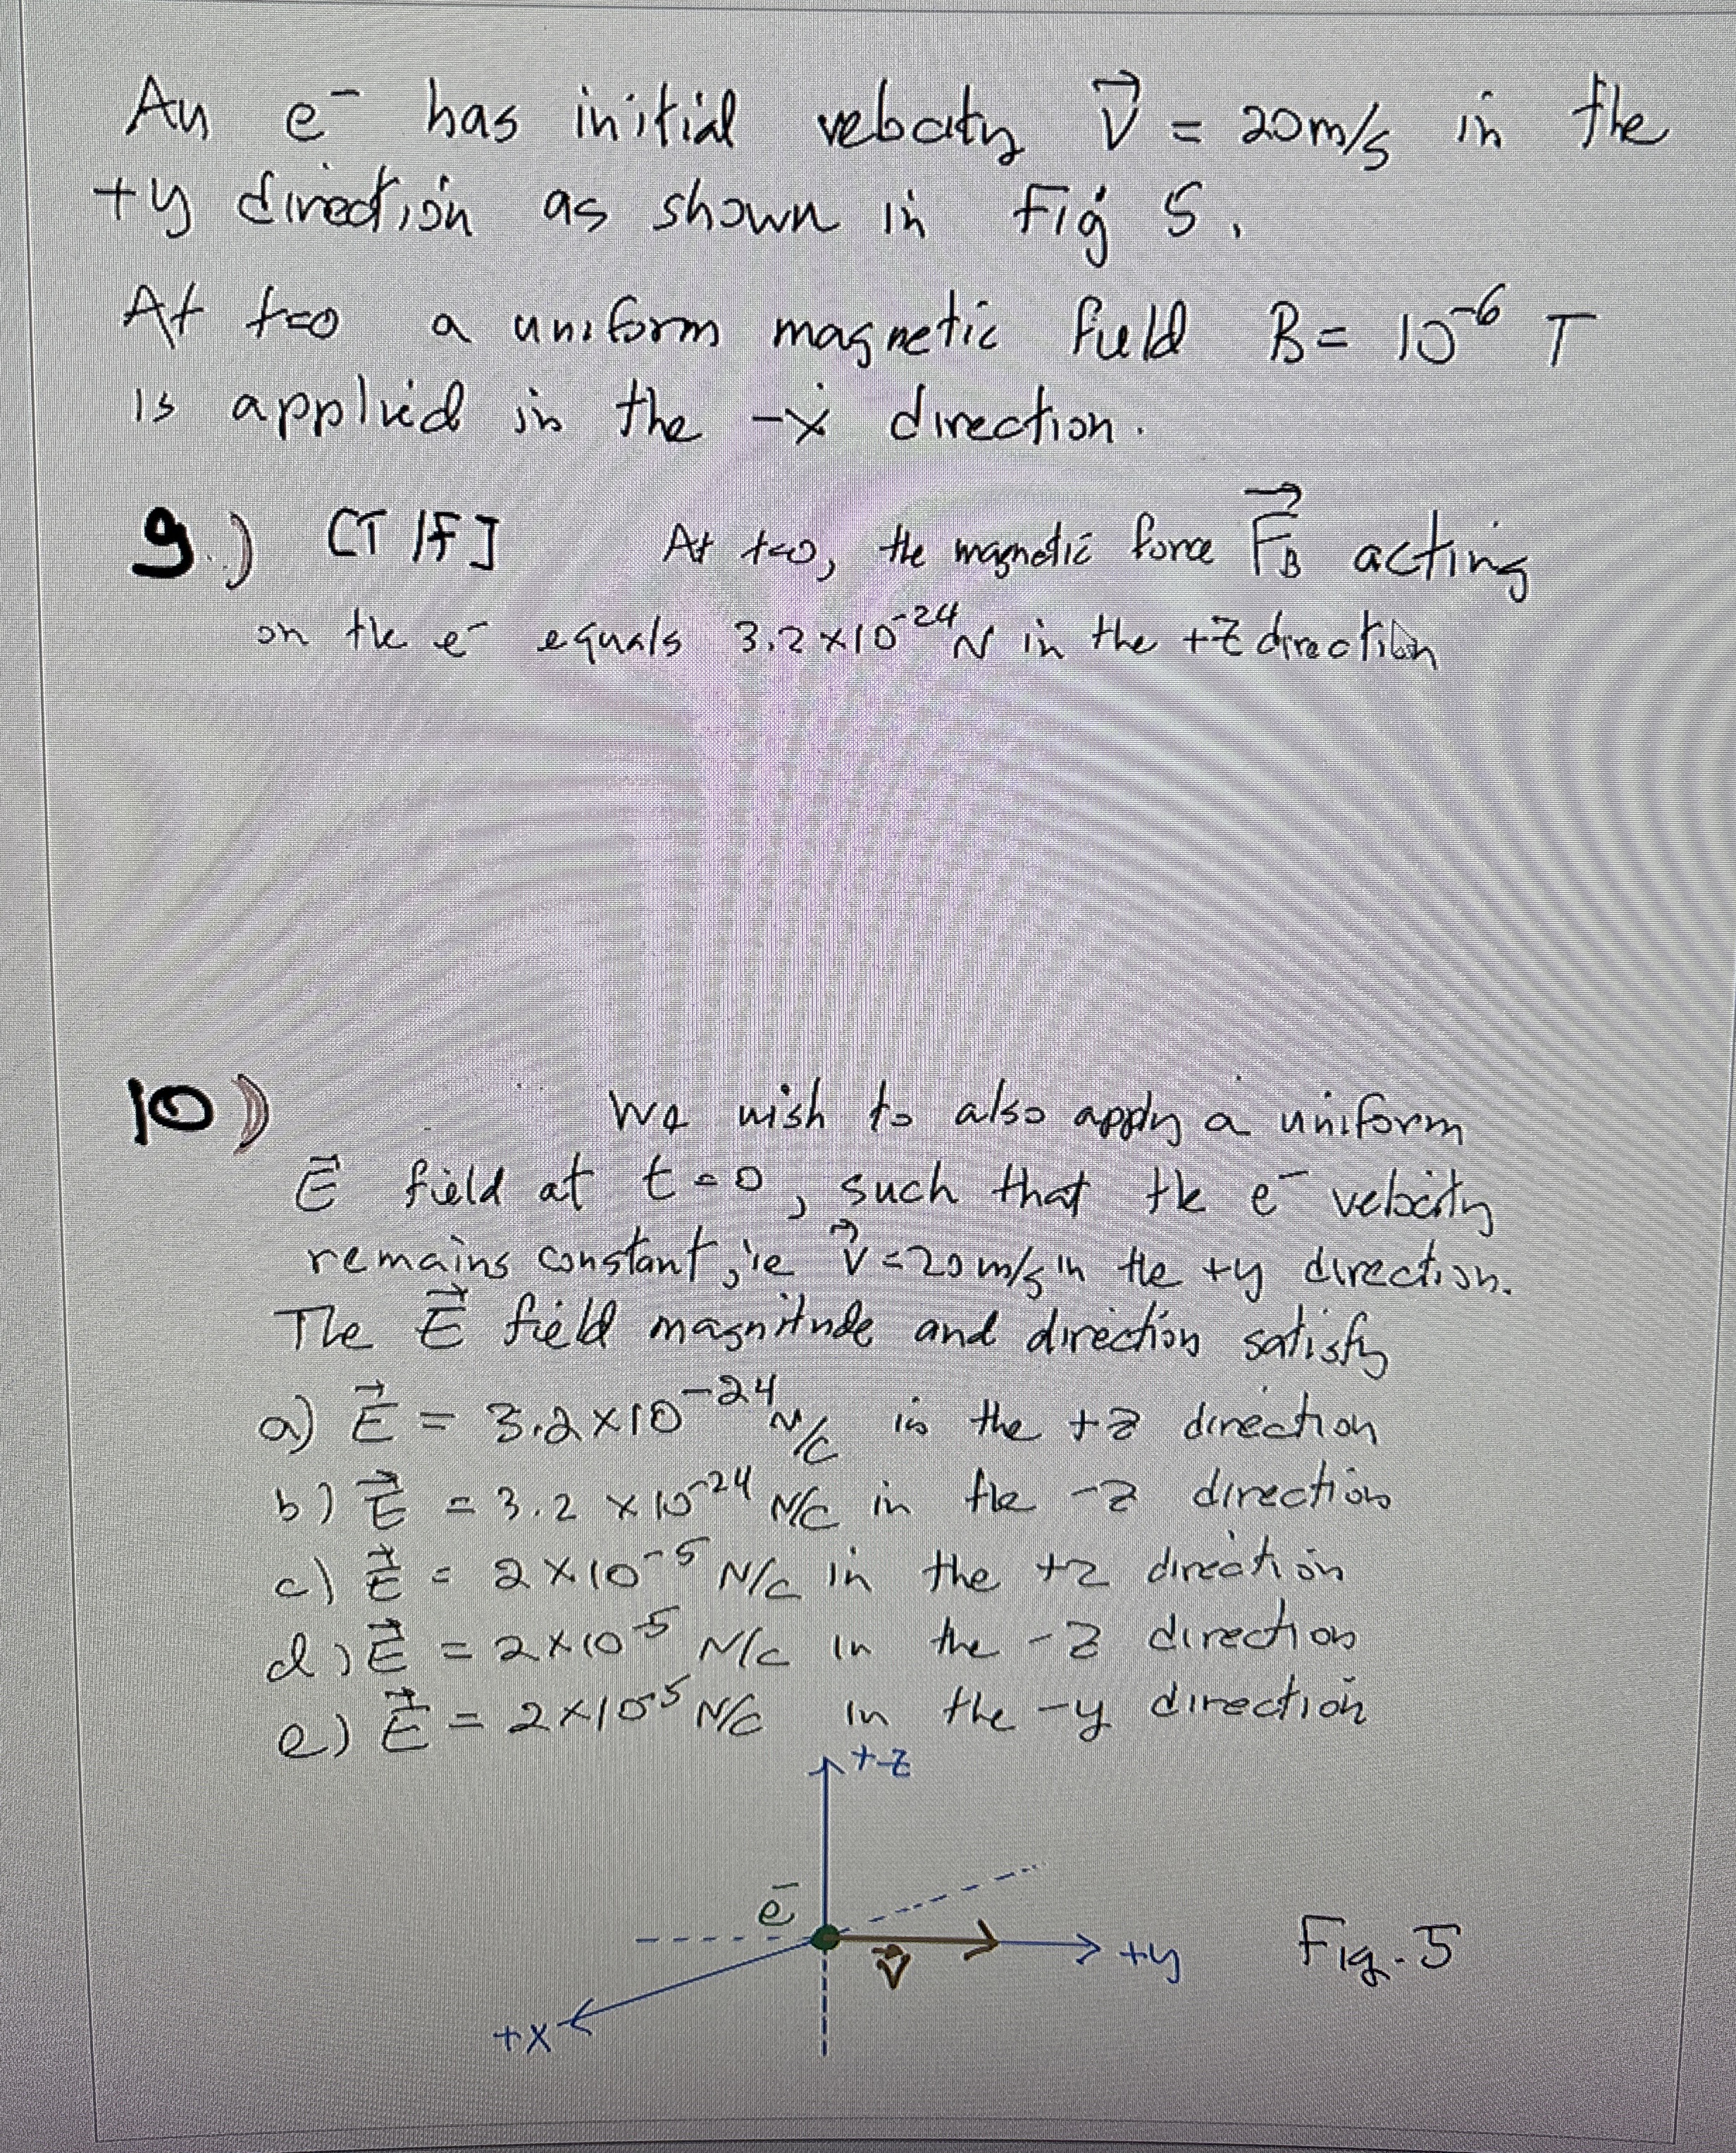 An e⁻ has initial velocity V⃗ = 20m/s in the
+y direction as shown in Fig 5.
At t=0 a uniform magnetic field B = 10⁻⁶ T
is applied in the -x direction.
9.) [T/F] At t=0, the magnetic force F⃗_B acting
on the e⁻ equals 3.2×10⁻²⁴ N in the +z direction
10) We wish to also apply a uniform
E⃗ field at t=0, such that the e⁻ velocity
remains constant, ie V⃗=20m/s in the +y direction.
The E⃗ field magnitude and direction satisfy
a) E⃗ = 3.2×10⁻²⁴ N/C in the +z direction
b) E⃗ = 3.2×10⁻²⁴ N/C in the -z direction
c) E⃗ = 2×10⁻⁵ N/C in the +z direction
d) E⃗ = 2×10⁻⁵ N/C in the -z direction
e) E⃗ = 2×10⁻⁵ N/C in the -y direction
+z
e⁻
v⃗
+y
Fig. 5
+x